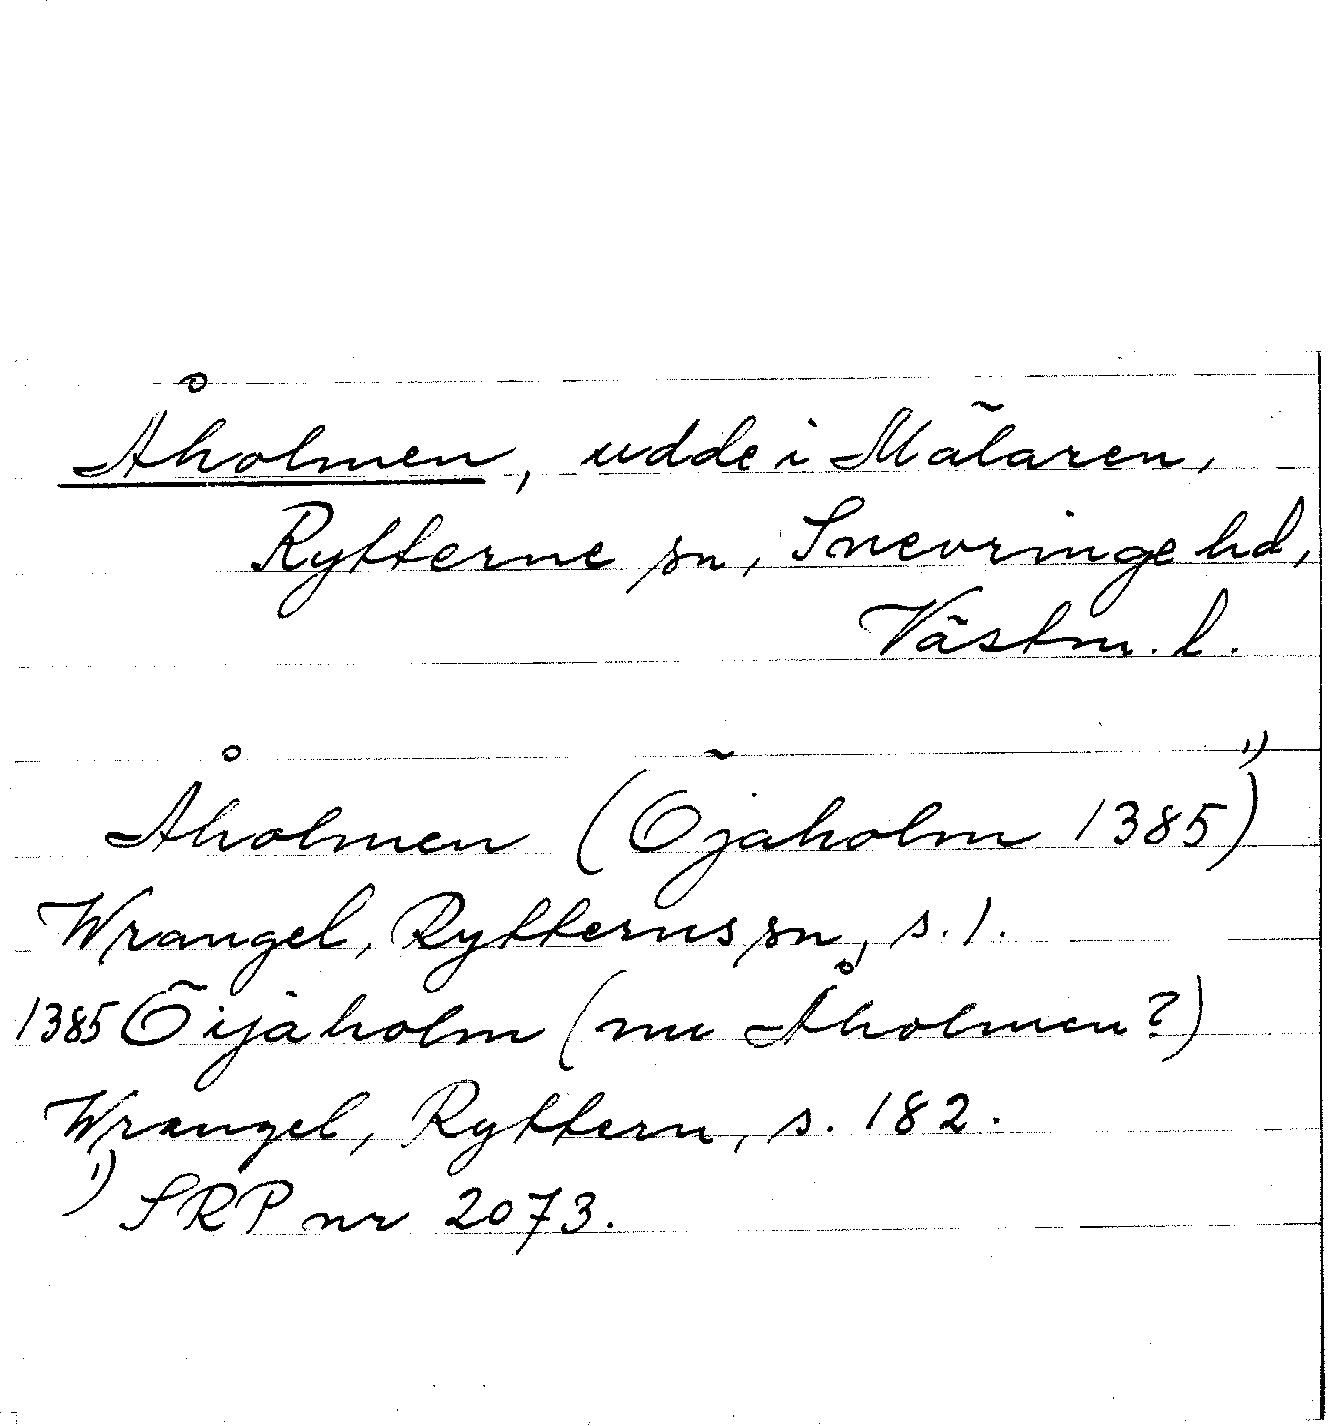 Åholmen, udde i Mälaren,
Rytterne sn, Snevringe hd,
Västm. l.
Åholmen (Öjaholm 1385)¹⁾
Wrangel, Rytterns sn, s. 1.
1385 Öijaholm (nu Åholmen?)
Wrangel, Ryttern, s. 182.
¹⁾ SRP nr 2073.